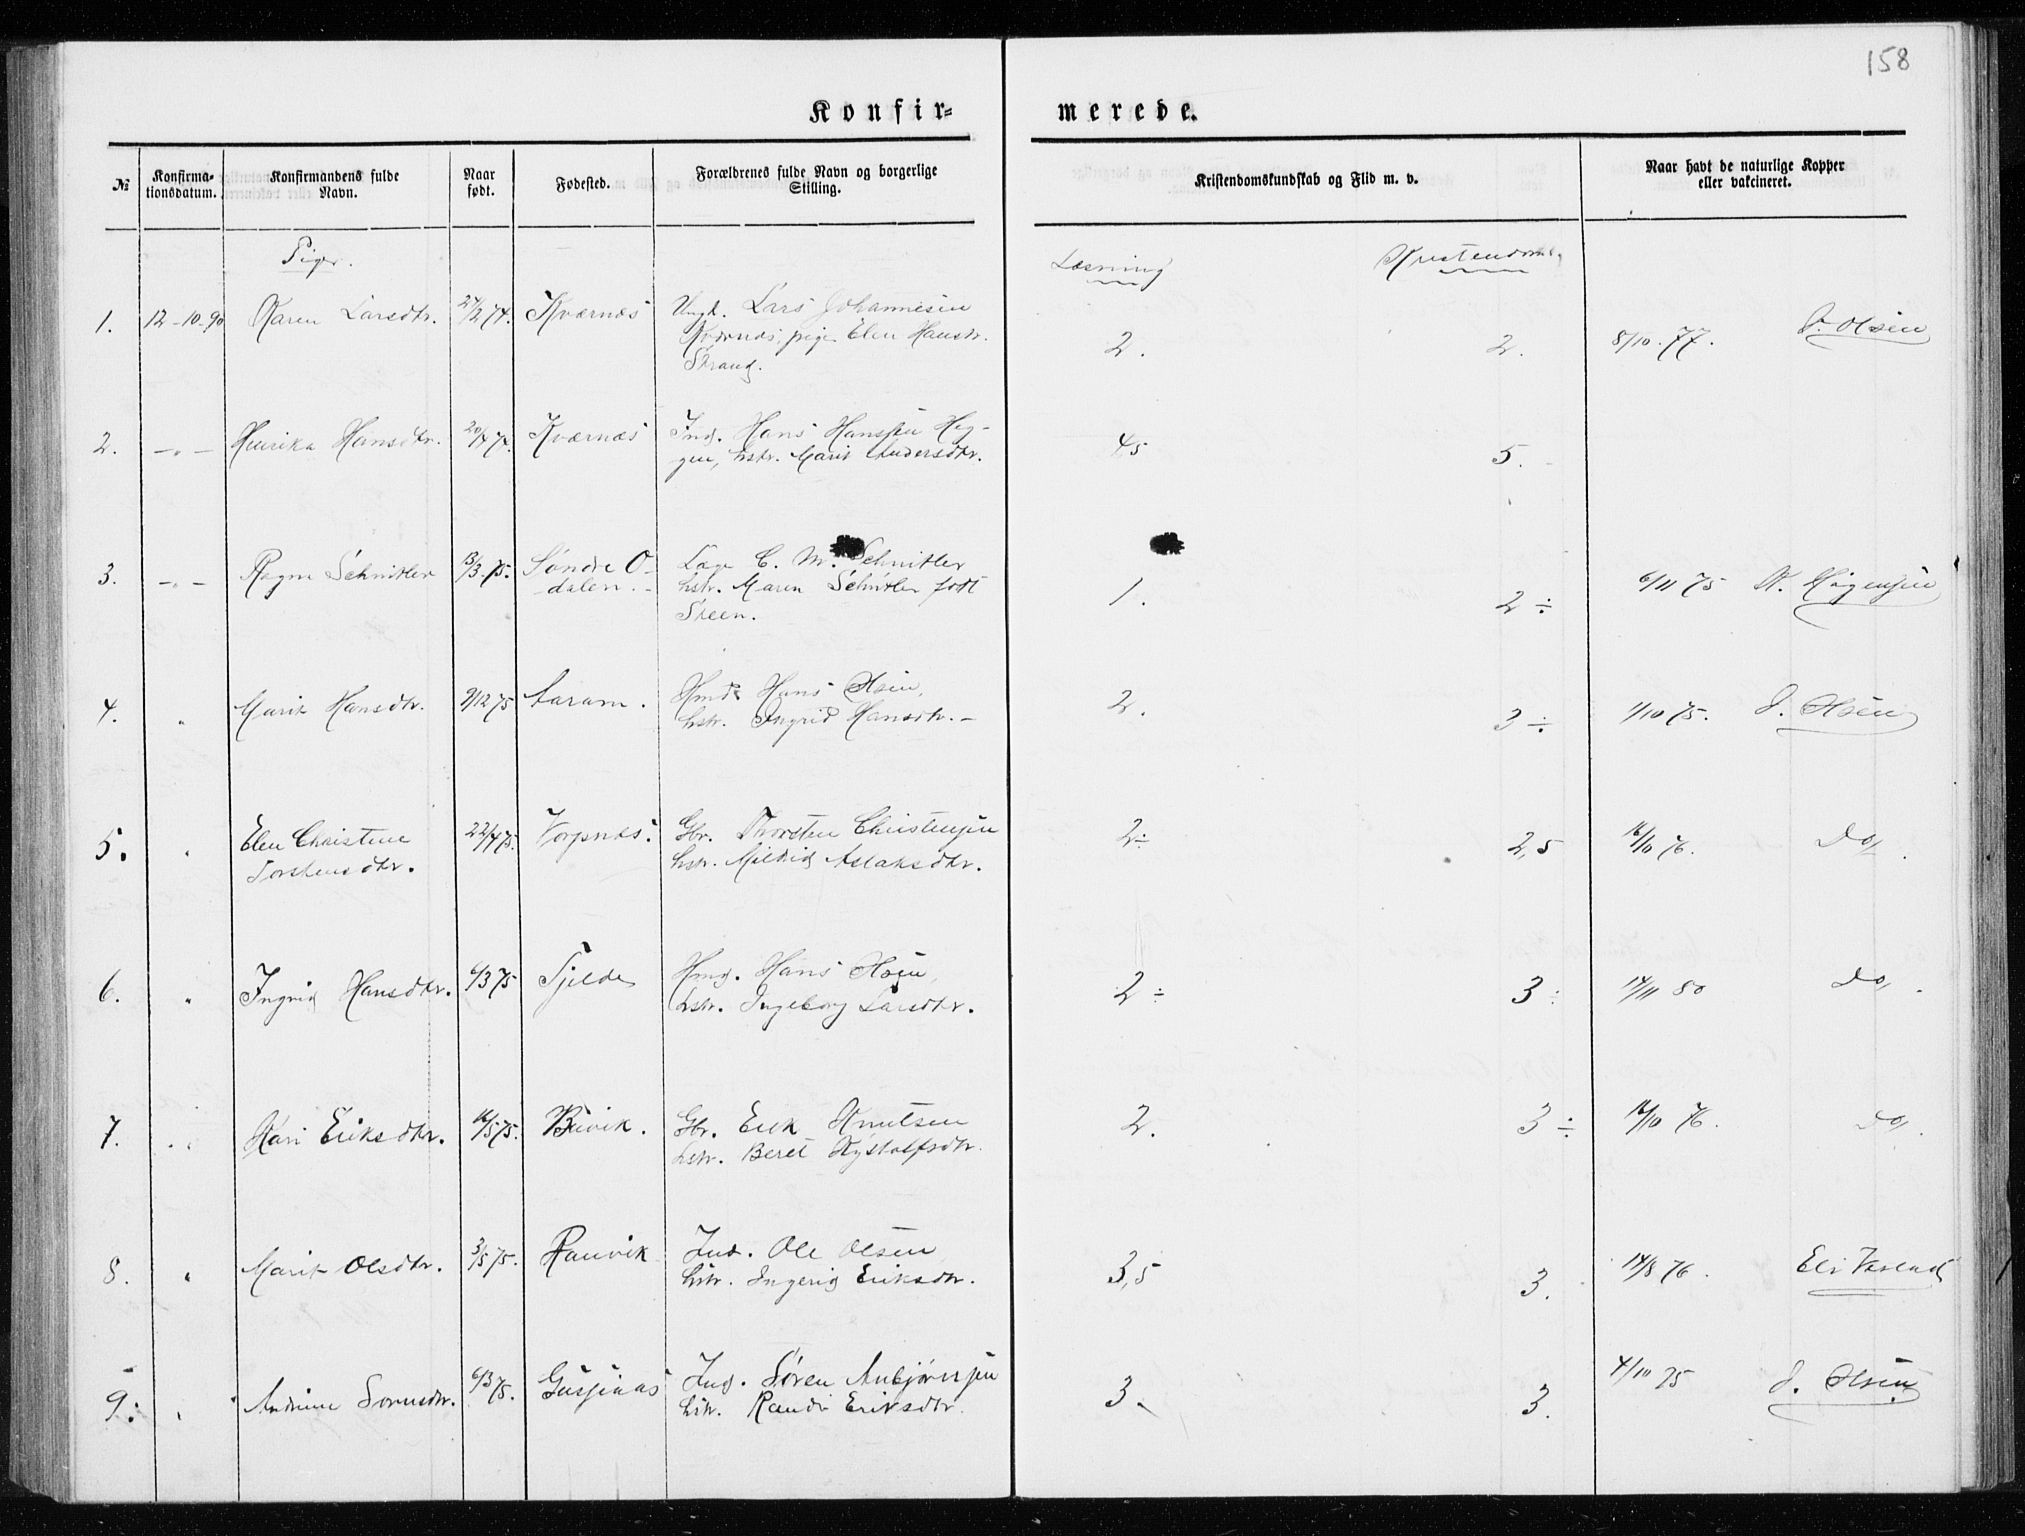 158
Konfir=
merede.
№
Konfirma-
tionsdatum.
Konfirmandens fulde
Navn.
Naar
født.
Fødested.
Forældrenes fulde Navn og borgerlige
Stilling.
Kristendomskundskab og Flid m. v.
Naar havt de naturlige Kopper
eller vakcineret.
Piger.
Læsning
Kristendoms.
1. 12-10-90 Karen Larsdtr. 27/2 74. Kværnæs Ungk. Lars Johannesen
Kværnæs, pige Elen Hansdtr.
Strand.
2. 2. 8/10. 77. J. Olsen
2. -"- Henrika Hansdtr. 20/4 74. Kværnæs Ind. Hans Hanssen Heg-
gen, hstr. Marit Andersdtr.
45 5.
3. -"- Ragna Schnitler 13/3. 75. Søndre O-
dalen.- Læge C. M. Schnitler
hstr. Maren Schnitler født
Steen.
1. 2 ÷ 6/11 75
4. " Marit Hansdtr. 9/12 75 Aaram. Hmd. Hans Olsen,
hstr. Ingrid Hansdtr.-
2. 3 ÷ 1/10 75. J. Olsen
5. " Elen Christine
Torstensdtr. 22/4 75. Vorpnæs. Gbr. Thorsten Christensen
hstr. Mildrid Aslaksdtr.
2÷ 2,5 16/10 76. Do.
6. " Ingrid Hansdtr. 6/3 75 Tjelde Hmd. Hans Olsen,
hstr. Ingeborg Larsdtr.
2 ÷ 3 ÷ 17/11 80 Do.
7. " Kari Eriksdtr. 16/5 75. Buvik. Gbr. Erik Knutsen
hstr. Beret
2. 3 ÷ 16/10 76. Do.
8. " Marit Olsdtr. 3/5 75. Ranvik Ind. Ole Olsen
hstr. Ingerid Eriksdtr.
3,5 3. 14/8 76. Eli
9. " Andrine Sørensdtr. 6/3 75. Gusjaas Ind. Søren Anbjørnsen
hstr. Randi Eriksdtr.
3. 3. 4/10 75 J. Olsen